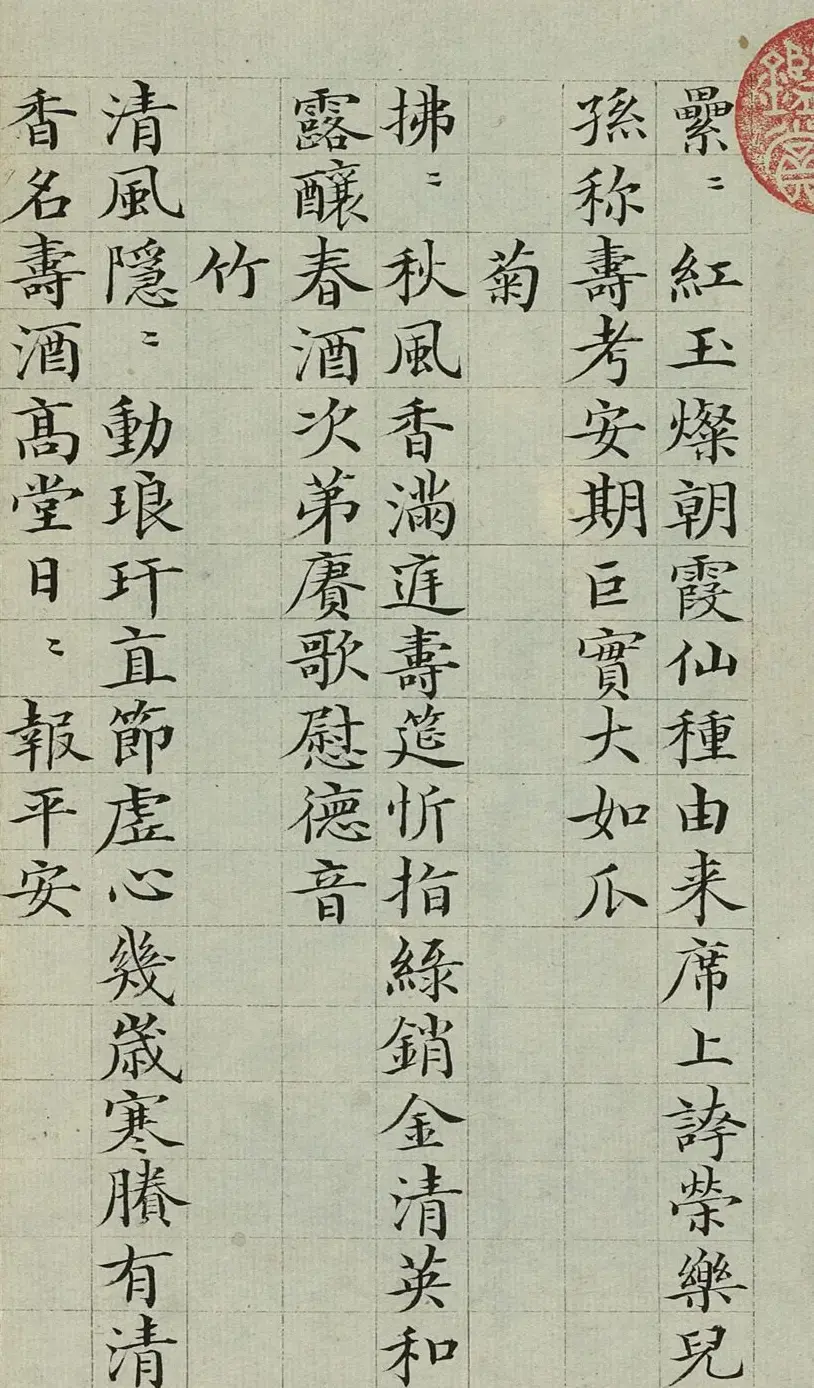 纍〻紅玉燦朝霞仙種由来席上誇榮樂兒
孫称壽考安期巨實大如瓜
菊
拂〻秋風香滿庭壽筵忻指綠銷金清英和
露釀春酒次苐賡歌慰德音
竹
清風隱〻動琅玕直節虛心幾歲寒賸有清
香名壽酒高堂日〻報平安